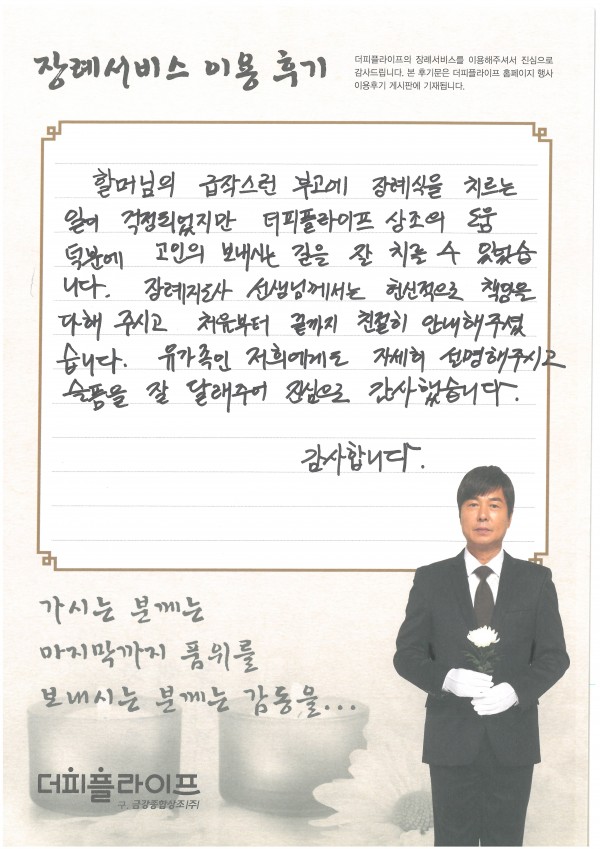 장례서비스 이용 후기
더피플라이프의 장례서비스를 이용해주셔서 진심으로
감사드립니다. 본 후기문은 더피플라이프 홈페이지 행사
이용후기 게시판에 기재됩니다.
할머님의 급작스런 부고에 장례식을 치르는
일이 걱정되었지만 더피플라이프 상조의 도움
덕분에 고인의 보내시는 길을 잘 치를 수 있었습
니다. 장례지도사 선생님께서는 헌신적으로 책임을
다해 주시고 처음부터 끝까지 친절히 안내해주셨
습니다. 유가족인 저희에게도 자세히 설명해주시고
슬픔을 잘 달래주어 진심으로 감사했습니다.
감사합니다.
가시는 분께는
마지막까지 품위를
보내시는 분께는 감동을...
더피플라이프
구. 금강종합상조(주)